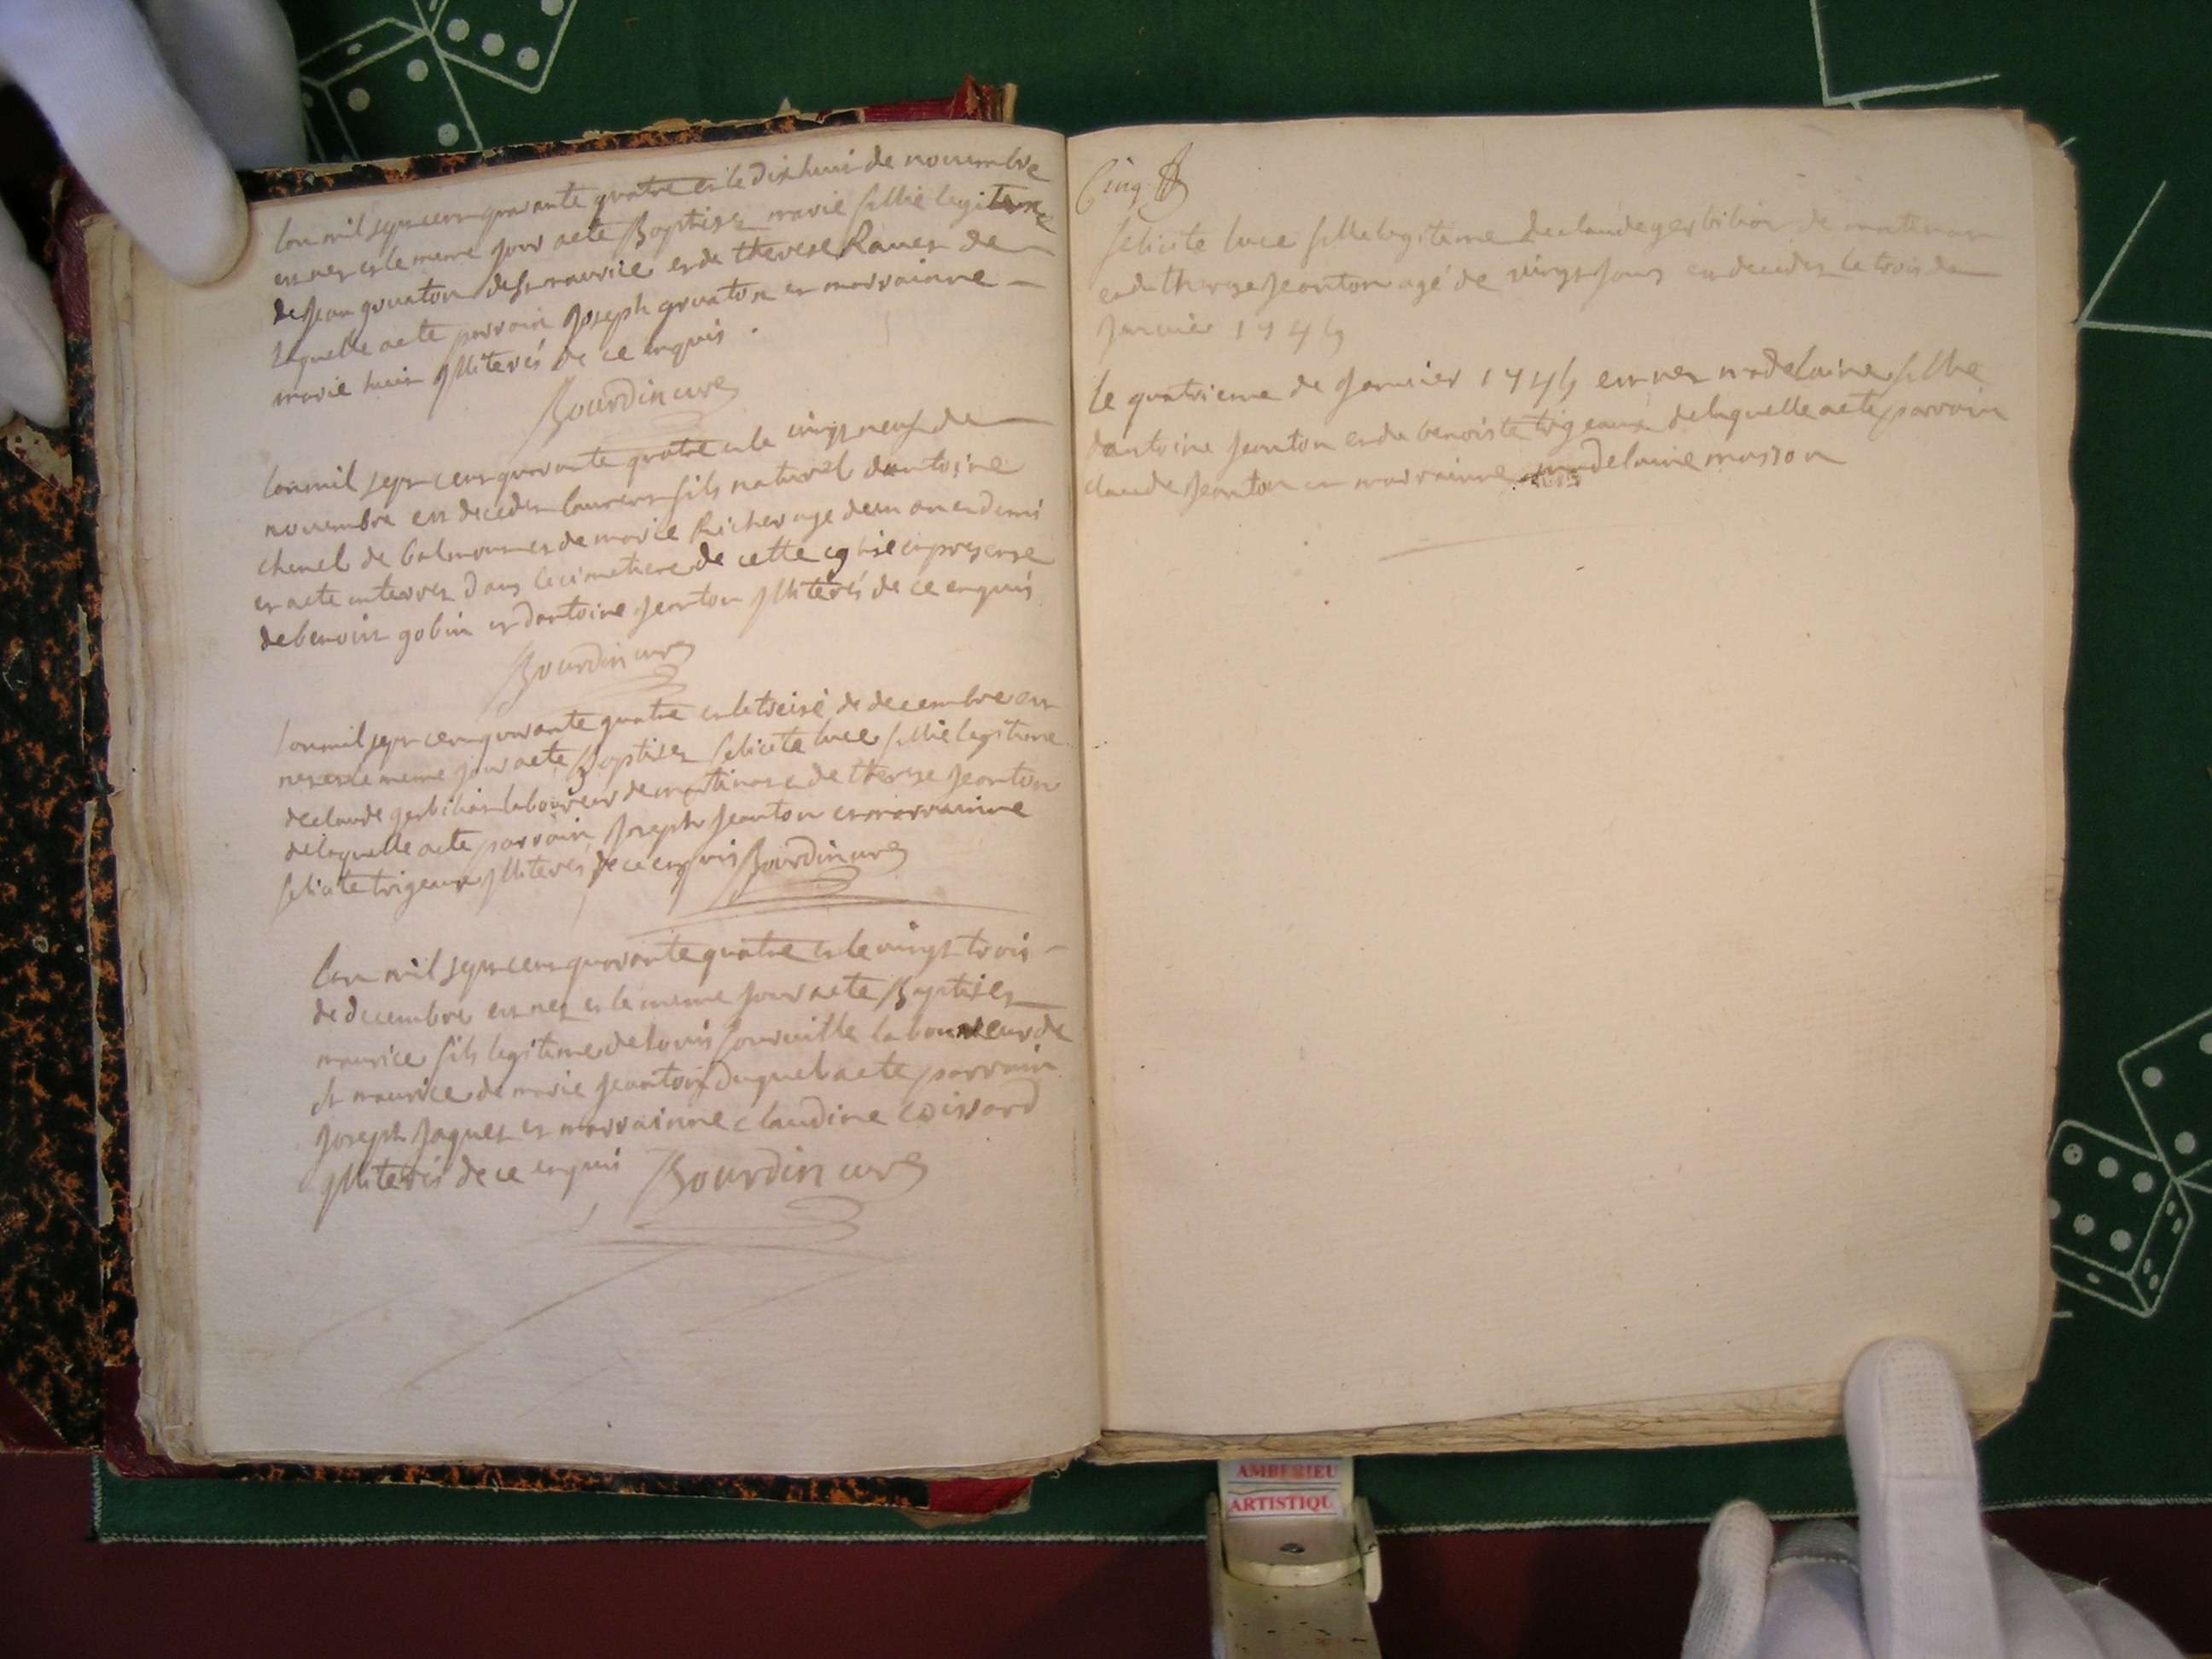 lan mil sept cent quarante quatre et le dixhuit de nouembre
est nez et le meme jour a ete Baptisez marie fillie legitime
de Jean gruaton de st maurice et de therese Rauet de
laquelle a ete parrain Joseph gruaton et marrainne
marie huit jlliterés de ce enquis
Bourdin curé
lan mil sept cent quarante quatre et le vingt neuf de
nouembre est decedez laurent fils naturel dantoine
chenel de balmont et de marie Richer age deun an et demi
et a ete enterrez dans le cimetiere de cette eglise en presence
de benoist gobin et dantoine Jeanton jlliterés de ce enquis
Bourdin curé
lan mil sept cent quarante quatre et le treise de decembre est
nez et le meme jour a ete Baptisez felicite luce fillie legitime
de claude gerbilion laboureur de martinas et de therese Jeanton
de laquelle a ete parrain Joseph Jeanton et marrainne
felicite trigeaux jlliteres de ce enquis Bourdin curé
lan mil sept cent quarante quatre et le vingt trois
de decembre est nez et le meme jour a ete Baptisez
maurice fils legitime de louis fourville laboureur de
st maurice de marie Jeanton duquel a ete parrain
Joseph Jaquet et marrainne claudine coissard
jlliterés de ce enquis Bourdin curé
Cinq
felicite luce fille legitime de claude gerbilion de martinas
et de therese Jeanton agé de vingt jours est decedez le trois de
Januier 1745
le quatrieme de Januier 1745 est nez madelaine fillie
dantoine Jeanton et de benoiste trigeaux de laquelle a ete parrain
claude Jeanton et marrainne madelaine masson
AMBERIEU
ARTISTIQU